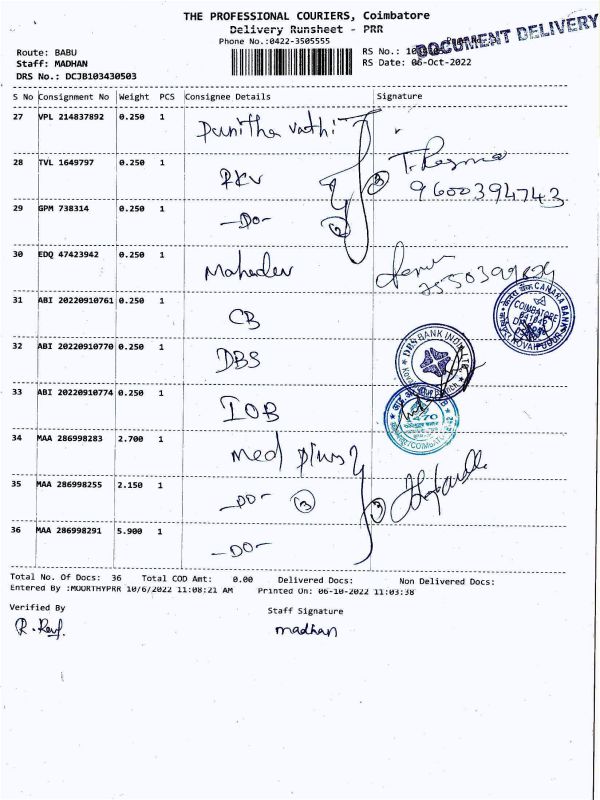 THE PROFESSIONAL COURIERS, Coimbatore
Delivery Runsheet - PRR
Phone No.:0422-3505555
DOCUMENT DELIVERY
Route: BABU
RS No.:
Staff: MADHAN
RS Date: 06-Oct-2022
DRS No.: DCJB103430503
S No Consignment No Weight PCS Consignee Details Signature
27 VPL 214837892 0.250 1 Punitha vathi
28 TVL 1649797 0.250 1 RKV
9600394743
29 GPM 738314 0.250 1 -DO-
30 EDQ 47423942 0.250 1 Mahadev
31 ABI 20220910761 0.250 1 CB
CANARA BANK
COIMBATORE
32 ABI 20220910770 0.250 1 DBS
DBS BANK INDIA LTD.
33 ABI 20220910774 0.250 1 IOB
34 MAA 286998283 2.700 1 Med plus
35 MAA 286998255 2.150 1 -DO- 3 3
36 MAA 286998291 5.900 1 -DO-
Total No. Of Docs: 36 Total COD Amt: 0.00 Delivered Docs: Non Delivered Docs:
Entered By :MOORTHYPRR 10/6/2022 11:08:21 AM Printed On: 06-10-2022 11:03:38
Verified By
Staff Signature
madhan